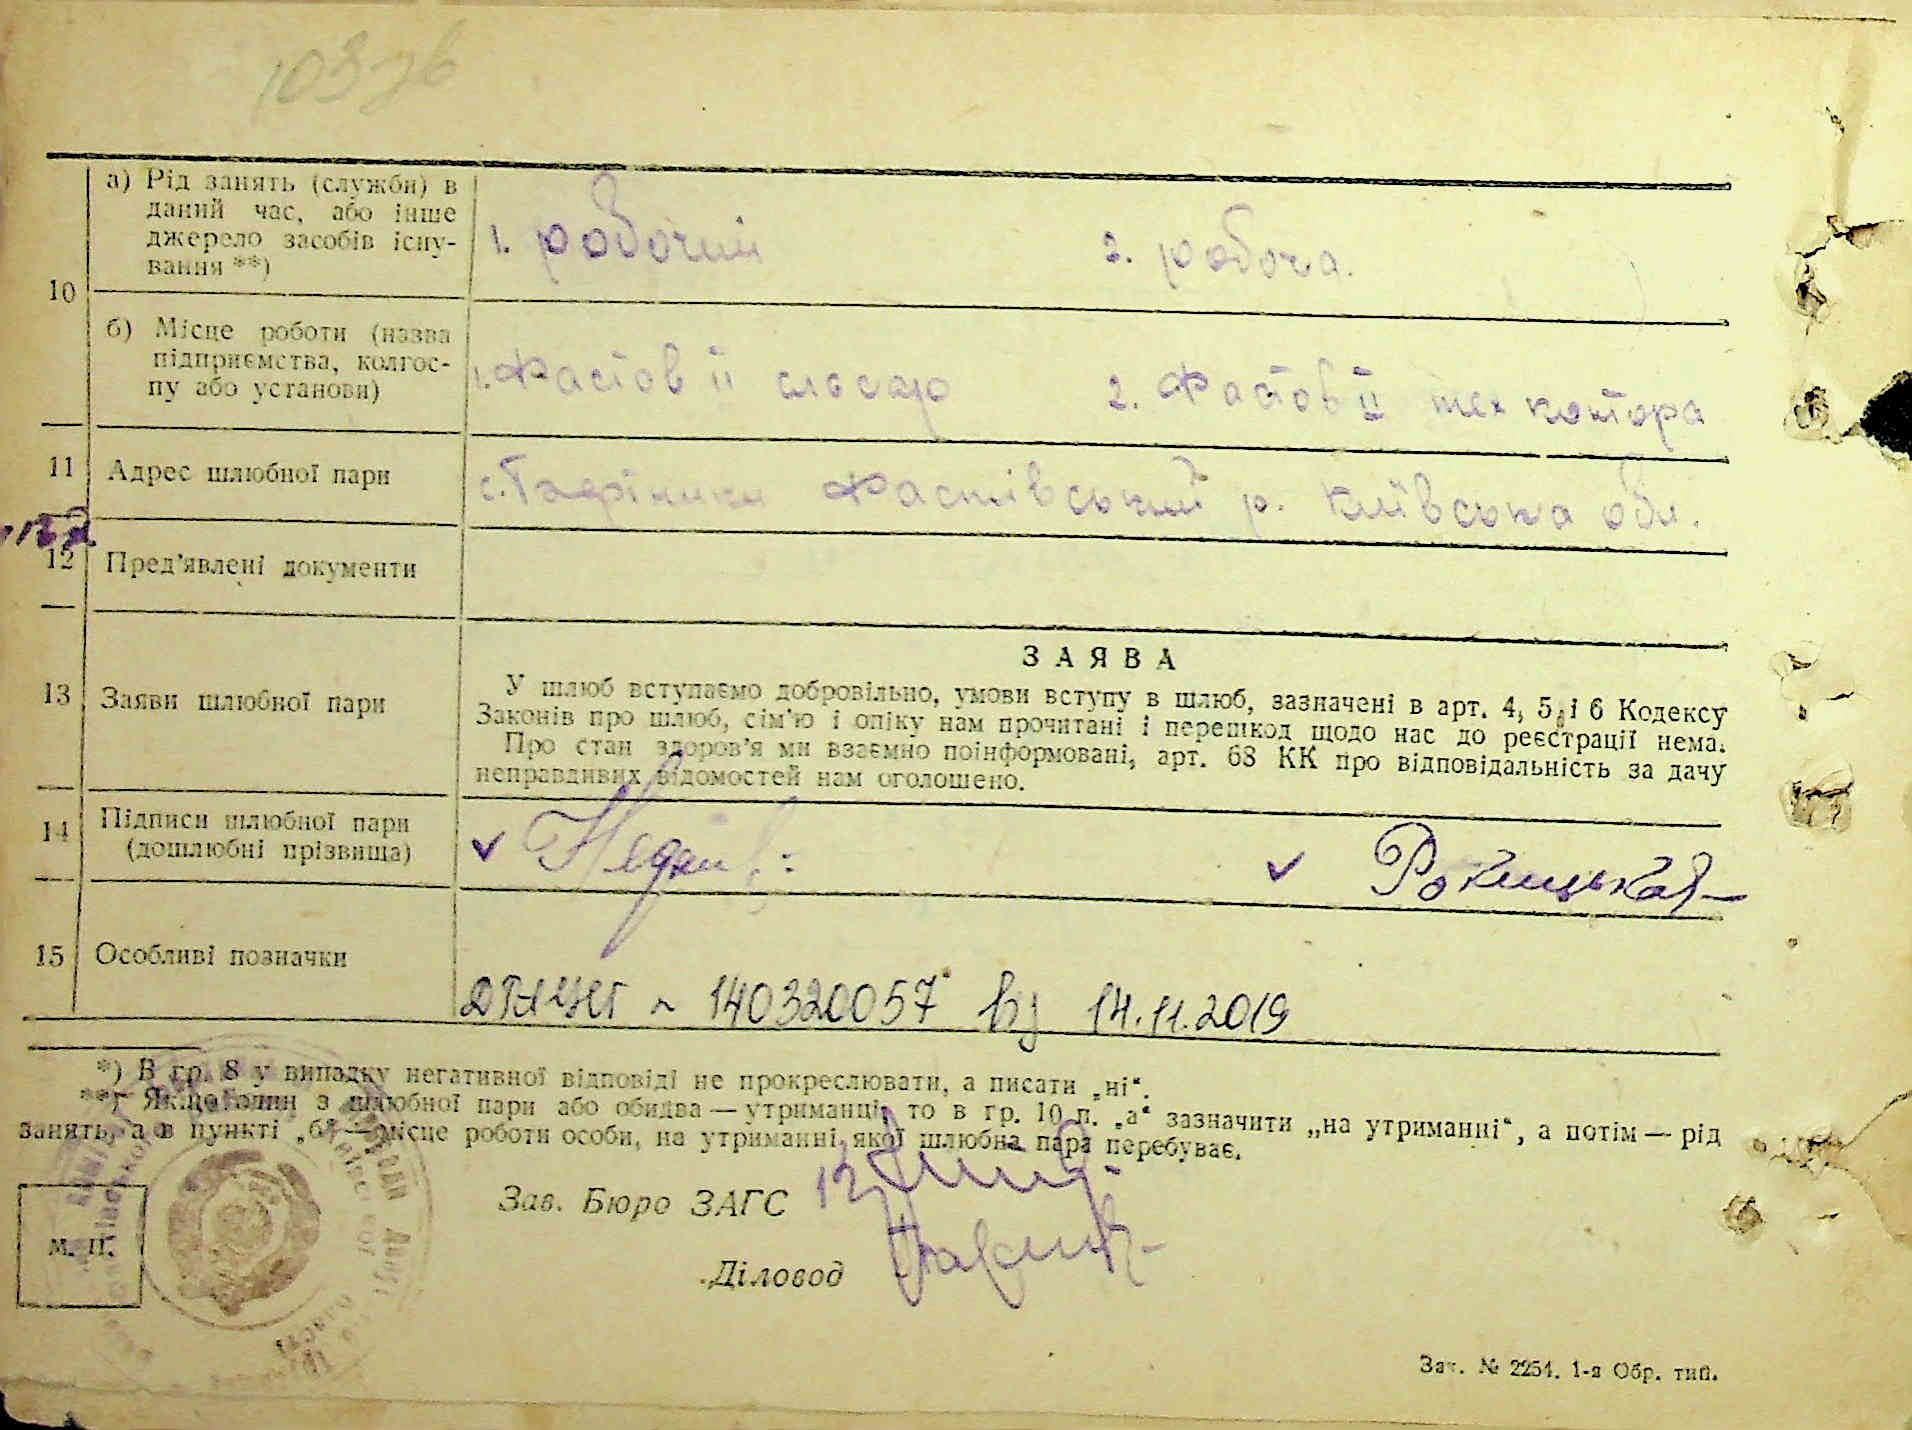 а) Рід занять (служби) в
даний час, або інше
джерело засобів існу-
вання **)
1. робочий 2. робоча.
10
б) Місце роботи (назва
підприємства, колгос-
пу або установи)
1. Фастов II слюсар 2. Фастов II тех контора
11 Адрес шлюбної пари
Фастівський р. Київська обл.
12 Пред'явлені документи
ЗАЯВА
13 Заяви шлюбної пари
У шлюб вступаємо добровільно, умови вступу в шлюб, зазначені в арт. 4, 5 і 6 Кодексу
Законів про шлюб, сім'ю і опіку нам прочитані і перешкод щодо нас до реєстрації нема.
Про стан здоров'я ми взаємно поінформовані, арт. 68 КК про відповідальність за дачу
неправдивих відомостей нам оголошено.
14 Підписи шлюбної пари
(дошлюбні прізвища)
15 Особливі позначки
140320057 14.11.2019
*) В гр. 8 у випадку негативної відповіді не прокреслювати, а писати „ні“.
**) Якщо один з шлюбної пари або обидва — утриманці, то в гр. 10 п. „а“ зазначити „на утриманні“, а потім — рід
занять, а в пункті „б“ — місце роботи особи, на утриманні якої шлюбна пара перебуває.
Зав. Бюро ЗАГС
м. п.
Діловод
Зат. № 2254. 1-а Обр. тип.